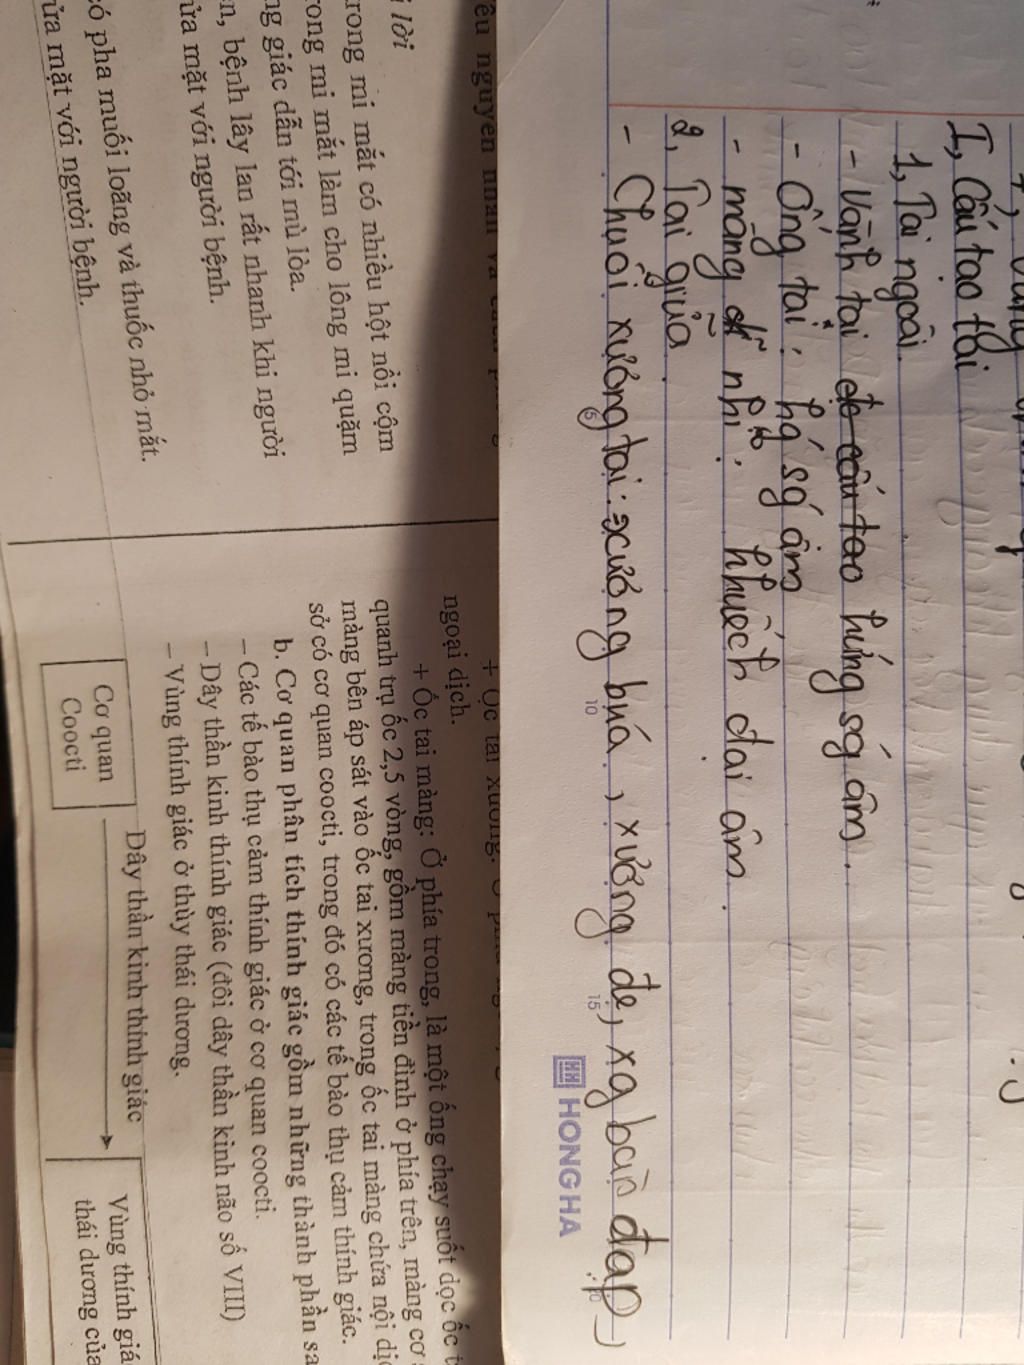 I, Cấu tạo tai
1, Tai ngoài
- Vành tai cấu tạo hứng sg âm.
- Ống tai: hg sg âm
- màng nhĩ: khuếch đại âm.
2, Tai giữa
- Chuỗi xương tai: xương búa, xương đe, xg bàn đạp
HH HONG HA
5
10
15
êu nguyên nhân và
i lời
rong mi mắt có nhiều hột nổi cộm
rong mi mắt làm cho lông mi quặm
ng giác dẫn tới mù lòa.
n, bệnh lây lan rất nhanh khi người
ửa mặt với người bệnh.
ó pha muối loãng và thuốc nhỏ mắt.
ửa mặt với người bệnh.
+ Ốc tai xương:
ngoại dịch.
+ Ốc tai màng: Ở phía trong, là một ống chạy suốt dọc ốc t
quanh trụ ốc 2,5 vòng, gồm màng tiền đình ở phía trên, màng cơ
màng bên áp sát vào ốc tai xương, trong ốc tai màng chứa nội dị
sở có cơ quan coocti, trong đó có các tế bào thụ cảm thính giác.
b. Cơ quan phân tích thính giác gồm những thành phần sa
– Các tế bào thụ cảm thính giác ở cơ quan coocti.
– Dây thần kinh thính giác (đôi dây thần kinh não số VIII)
– Vùng thính giác ở thùy thái dương.
Dây thần kinh thính giác
Cơ quan
Coocti
Vùng thính giá
thái dương của